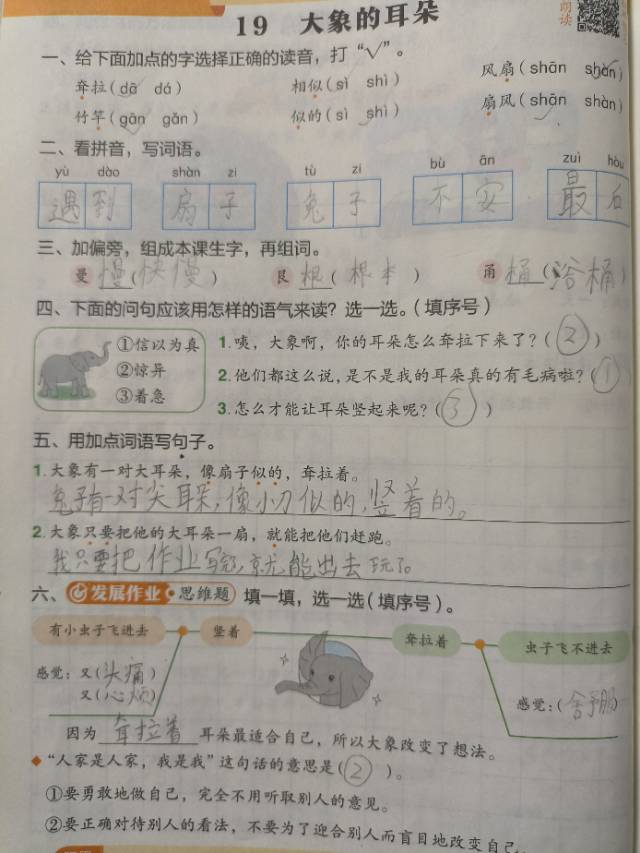 朗读
19 大象的耳朵
一、给下面加点的字选择正确的读音，打“√”。
耷拉（dā dá） 相似（sì shì） 风扇（shān shàn）
竹竿（gān gǎn） 似的（sì shì） 扇风（shān shàn）
二、看拼音，写词语。
yù dào shàn zi tù zi bù ān zuì hòu
遇到 扇子 兔子 不安 最后
三、加偏旁，组成本课生字，再组词。
曼 慢（快慢） 艮 根（根本） 甬 桶（浴桶）
四、下面的问句应该用怎样的语气来读？选一选。（填序号）
①信以为真 1.咦，大象啊，你的耳朵怎么耷拉下来了？（②）
②惊异 2.他们都这么说，是不是我的耳朵真的有毛病啦？（①）
③着急 3.怎么才能让耳朵竖起来呢？（③）
五、用加点词语写句子。
1.大象有一对大耳朵，像扇子似的，耷拉着。
兔子有一对尖耳朵，像小刀似的，竖着的。
2.大象只要把他的大耳朵一扇，就能把他们赶跑。
我只要把作业写完，就能出去玩了。
六、发展作业 思维题 填一填，选一选（填序号）。
有小虫子飞进去 竖着 耷拉着 虫子飞不进去
感觉：又（头痛）
又（心烦） 感觉：（舒服）
因为 耷拉着 耳朵最适合自己，所以大象改变了想法。
◆“人家是人家，我是我”这句话的意思是（②）。
①要勇敢地做自己，完全不用听取别人的意见。
②要正确对待别人的看法，不要为了迎合别人而盲目地改变自己